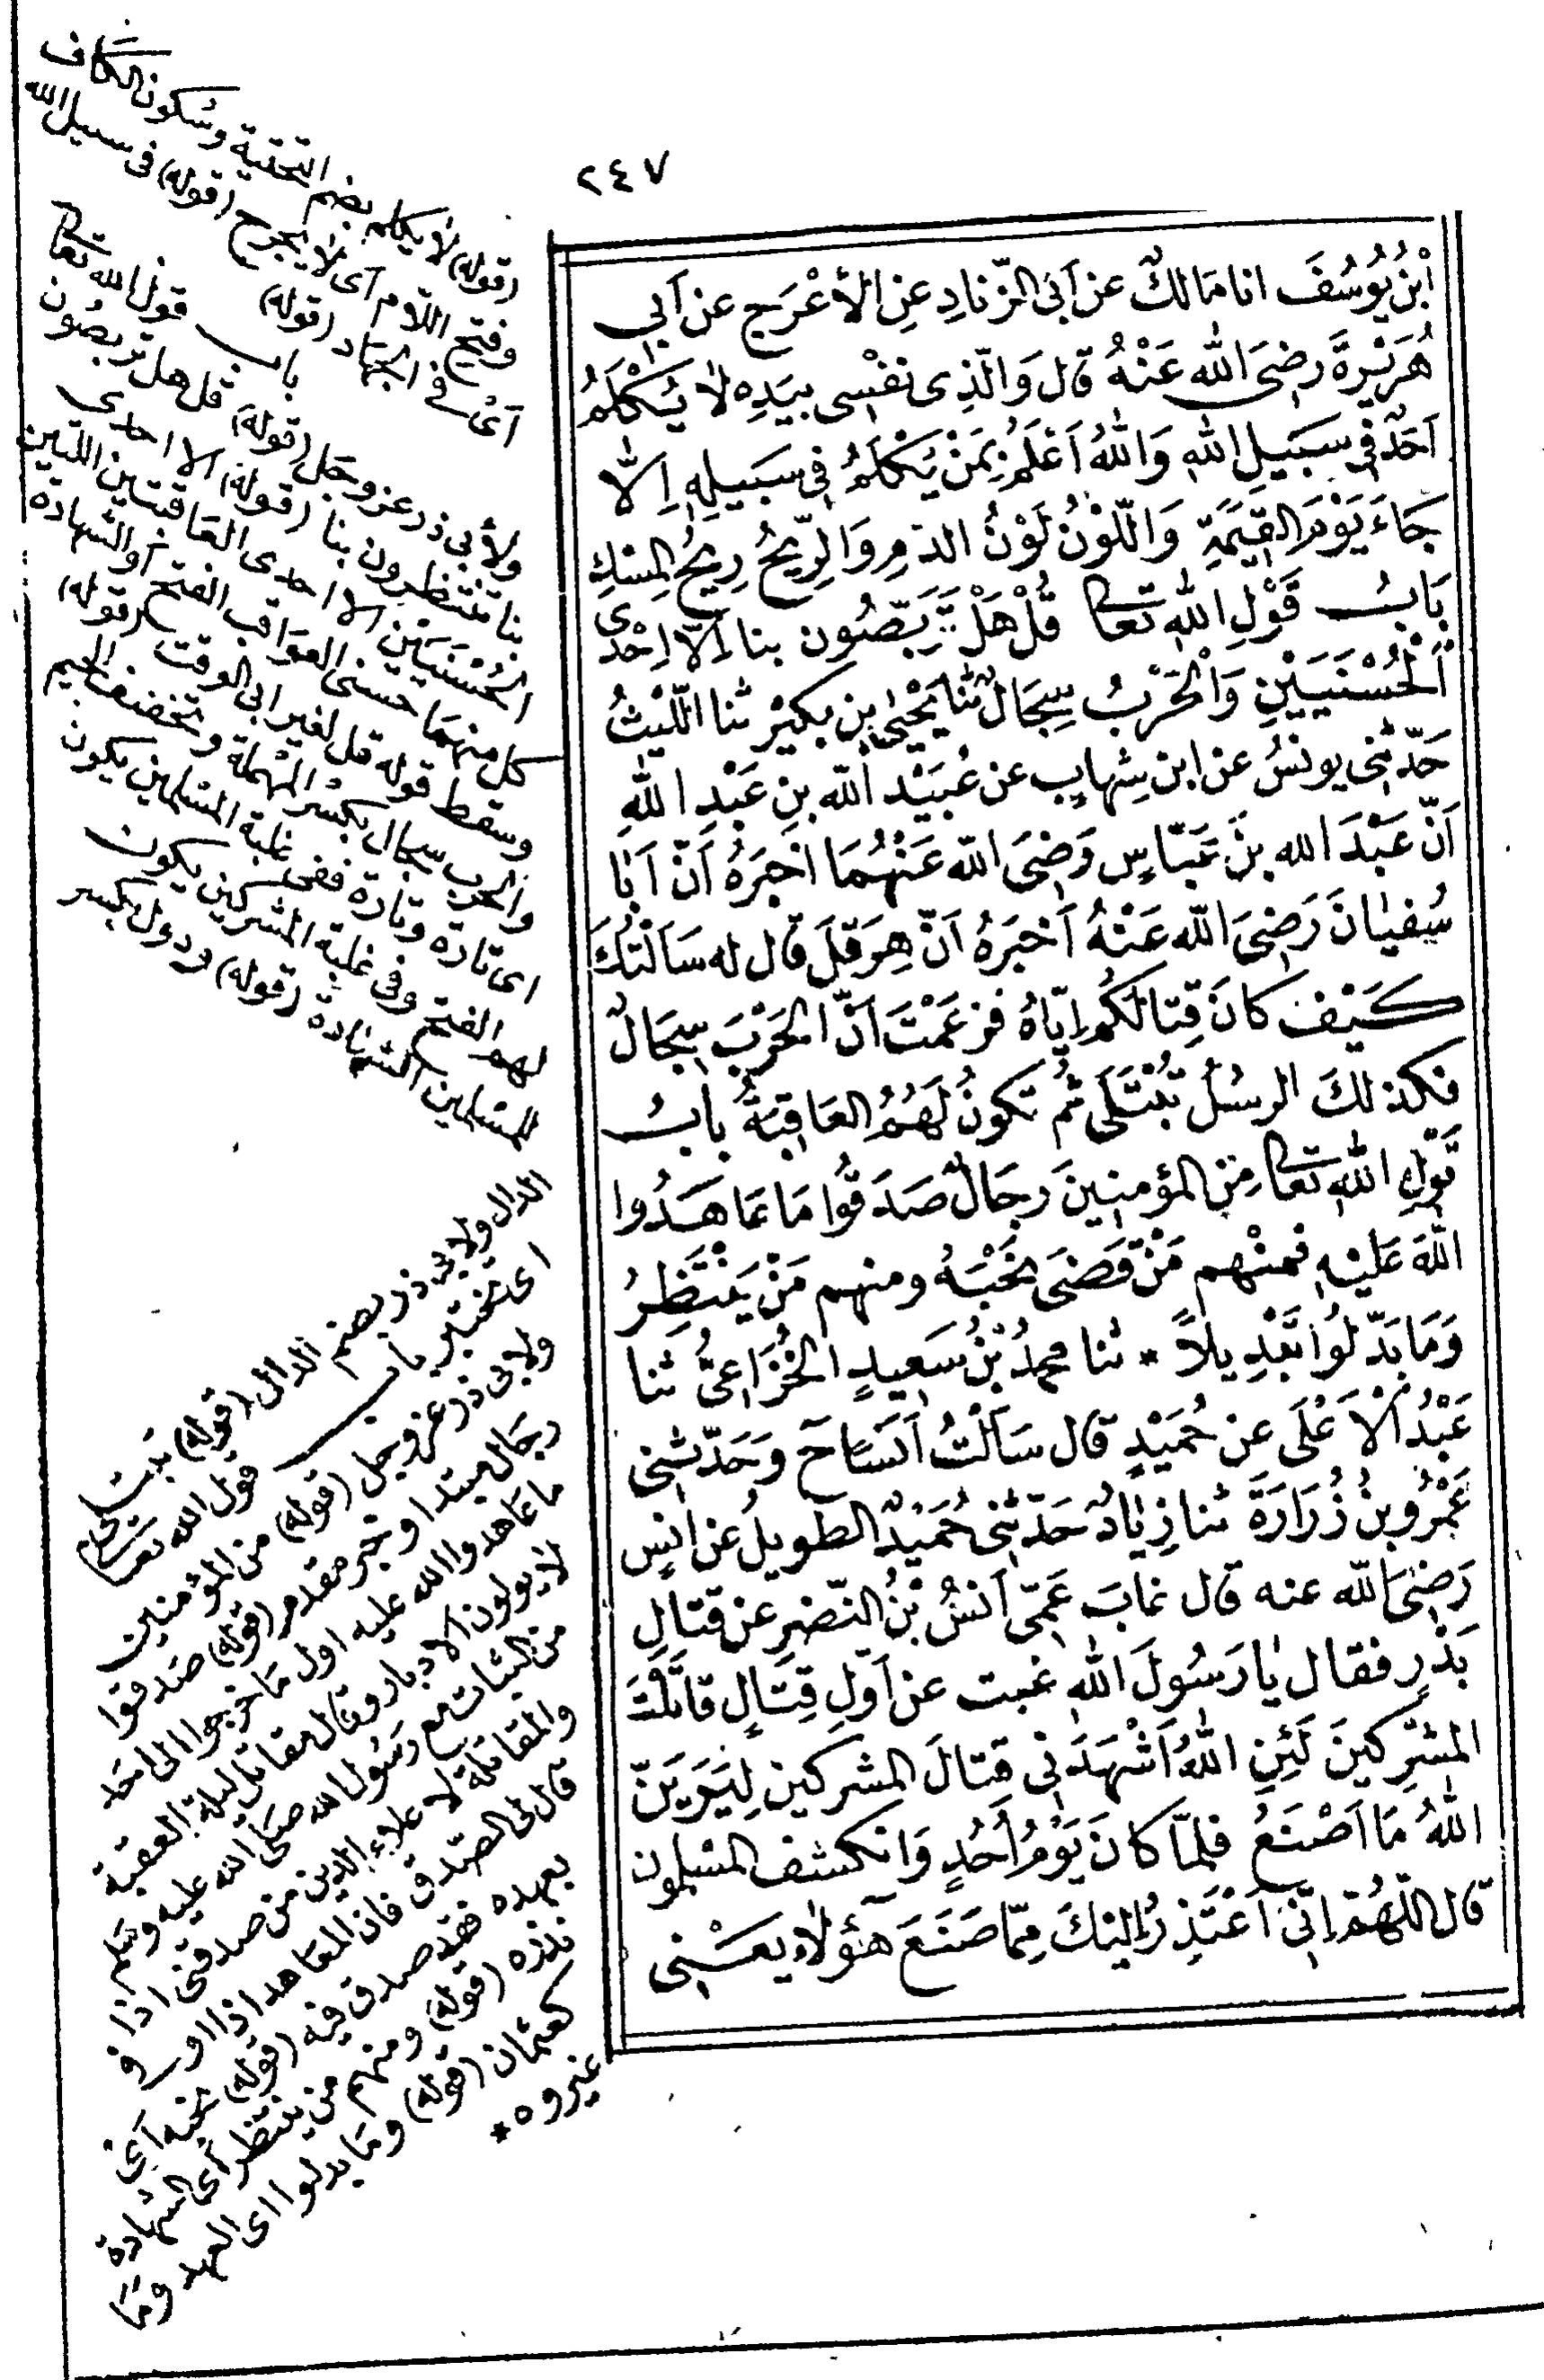 ٢٤٧
ابْنُ يُوسُفَ انا مَالكٌ عن اَبِى الزّنادِ عِنِ الأَعْرَجِ عن اَبِي
هُرَيْرَةَ رضِىَ الله عَنْهُ قال وَالّذِى نفْسِى بيَدِهِ لاَ يُكْلَمُ
اَحَدٌ فِى سبَيلِ اللهِ وَاللهُ اَعْلَمُ بِمَنْ يُكْلَمُ فِى سَبَيلِهِ اِلاَّ
جَاءَ يَوْمَ القِيمَةِ وَاللّوْنُ لَوْنُ الدَّمِ وَالرِّيحُ رِيحُ المِسْكِ
بَابُ قَوْلِ اللهِ تعَالى قُلْ هَلْ تَرَبَّصُون بنا اِلاّ اِحْدَى
الْحُسْنَيَيْنِ وَالْحَرْبُ سِجَالٌ ثنا يَحْيَى بن بكيْر ثنا اللّيْثُ
حَدّثنِى يونسُ عن ابن شِهابٍ عن عُبَيْد الله بنِ عَبْدِ اللهِ
اَنّ عَبْدَ الله بنَ عَبّاسٍ رَضِىَ الله عَنْهُمَا اخبَرَهُ اَنّ اَبَا
سُفيانَ رَضِىَ الله عَنْهُ اَخبَرَهُ اَنّ هِرَقلَ قال له سَاَلْتُكَ
كَيْفَ كانَ قِتالكُم اِيّاهُ فزعَمْتَ اَنّ الحَرْبَ سِجَالٌ
فكذلكَ الرسُلُ تُبْتَلَى ثُم تكونُ لَهُمُ العَاقِبَةُ بابُ
قَوْلِ اللهِ تعَالى مِنَ المؤمِنِينَ رِجَالٌ صَدَقُوا مَا عَاهَدُوا
اللهَ عَليْهِ فمنْهم مَنْ قَضَى نَحْبَهُ ومنهم مَنْ يَنْتَظِرُ
وَمَا بَدّلُوا تَبْدِيلاً * ثنا محمدُ بْنُ سَعِيدٍ الخُزَاعِىُّ ثنا
عَبْدُ اْلاَعْلَى عن حُمَيْدٍ قال سَاَلْتُ اَنَسًا ح وَحَدّثنِى
عَمْرُو بنُ زُرَارَةَ ثنا زِيادٌ حَدّثنِى حُمَيْدٌ الطويلُ عن انسٍ
رَضِىَ الله عنه قال غابَ عَمِّى اَنسُ بْنُ النّضرِ عن قتالِ
بَدْرٍ فقال يا رَسُولَ اللهِ غبت عن اَوّلِ قِتَالٍ قاتَلْتَ
المشرِكينَ لَئِنِ اللهُ اَشْهَدَنِى قتالَ المشركين لَيَرَيَنّ
اللهُ مَا اَصْنَعُ فلمّا كانَ يَوْمُ اُحُدٍ وَانكشف المسْلمون
قال اللّهُمّ اِنّى اَعْتَذِرُ اِليْكَ مِمّا صَنَعَ هَؤلاءِ يعْنِى
(قوله) لا يكلم بضم التحتية وسكون الكاف
وفتح اللام اى لا يجرح (قوله) فى سبيل الله
اى فى الجهاد (قوله) باب قول الله تعالى
ولأبى ذر عز وجل (قوله) قل هل تربصون
بنا تنتظرون بنا (قوله) الا احدى
الحسنيين الا احدى العاقبتين اللتين
كل منهما حسنى العواقب الفتح أو الشهادة
وسقط قوله قل لغير ابى الوقت (قوله)
والحرب سجال بكسر المهملة وتخفيف الجيم
اى تارة وتارة ففى غلبة المسلمين يكون
لهم الفتح وفى غلبة المشركين يكون
للمسلمين الشهادة (قوله) ودول بكسر
الدال ولابى ذر بضم الدال (قوله) تبتلى
اى تختبر باب قول الله تعالى
ولابى ذر عز وجل (قوله) من المؤمنين
رجال مبتدا وخبر مقدم (قوله) صدقوا
ما عاهدوا الله عليه اول ما خرجوا الى احد
لا يولون الادبار وقال مقاتل ليلة العقبة
من الثبات مع رسول الله صلى الله عليه وسلم
والمقاتلة لاعلاء الدين من صدقنى اذا
قال لى الصدق فان المعاهد اذا اوفى
بعهده فقد صدق فيه (قوله) نحبه اى
نذره (قوله) ومنهم من ينتظر اى الشهادة
كعثمان (قوله) وما بدلوا اى العهد وما
غيروه *